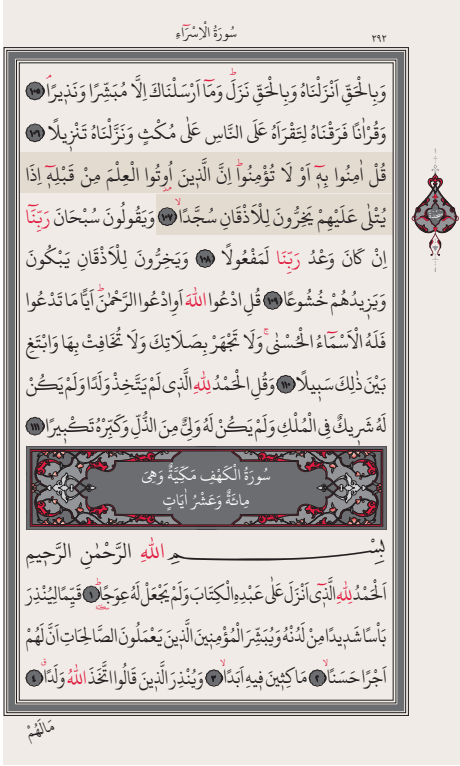 سُورَةُ الْاِسْرَٓاءِ
٢٩٢
وَبِالْحَقِّ اَنْزَلْنَاهُ وَبِالْحَقِّ نَزَلَۜ وَمَٓا اَرْسَلْنَاكَ اِلَّا مُبَشِّرًا وَنَذ۪يرًاۢ ﴿١٠٥﴾
وَقُرْاٰنًا فَرَقْنَاهُ لِتَقْرَاَهُ عَلَى النَّاسِ عَلٰى مُكْثٍ وَنَزَّلْنَاهُ تَنْز۪يلًا ﴿١٠٦﴾
قُلْ اٰمِنُوا بِه۪ٓ اَوْ لَا تُؤْمِنُواۜ اِنَّ الَّذ۪ينَ اُو۫تُوا الْعِلْمَ مِنْ قَبْلِه۪ٓ اِذَا
يُتْلٰى عَلَيْهِمْ يَخِرُّونَ لِلْاَذْقَانِ سُجَّدًاۙ ﴿١٠٧﴾ وَيَقُولُونَ سُبْحَانَ رَبِّنَٓا
اِنْ كَانَ وَعْدُ رَبِّنَا لَمَفْعُولًا ﴿١٠٨﴾ وَيَخِرُّونَ لِلْاَذْقَانِ يَبْكُونَ
وَيَز۪يدُهُمْ خُشُوعًا ﴿١٠٩﴾ قُلِ ادْعُوا اللّٰهَ اَوِ ادْعُوا الرَّحْمٰنَۜ اَيًّا مَا تَدْعُوا
فَلَهُ الْاَسْمَٓاءُ الْحُسْنٰىۚ وَلَا تَجْهَرْ بِصَلَاتِكَ وَلَا تُخَافِتْ بِهَا وَابْتَغِ
بَيْنَ ذٰلِكَ سَب۪يلًا ﴿١١٠﴾ وَقُلِ الْحَمْدُ لِلّٰهِ الَّذ۪ي لَمْ يَتَّخِذْ وَلَدًا وَلَمْ يَكُنْ
لَهُ شَر۪يكٌ فِي الْمُلْكِ وَلَمْ يَكُنْ لَهُ وَلِيٌّ مِنَ الذُّلِّ وَكَبِّرْهُ تَكْب۪يرًا ﴿١١١﴾
سُورَةُ الْكَهْفِ مَكِّيَّةٌ وَهِيَ
مِائَةٌ وَعَشْرُ اٰيَاتٍ
بِسْمِ اللّٰهِ الرَّحْمٰنِ الرَّح۪يمِ
اَلْحَمْدُ لِلّٰهِ الَّذ۪ٓي اَنْزَلَ عَلٰى عَبْدِهِ الْكِتَابَ وَلَمْ يَجْعَلْ لَهُ عِوَجًاۜ ﴿١﴾ قَيِّمًا لِيُنْذِرَ
بَأْسًا شَد۪يدًا مِنْ لَدُنْهُ وَيُبَشِّرَ الْمُؤْمِن۪ينَ الَّذ۪ينَ يَعْمَلُونَ الصَّالِحَاتِ اَنَّ لَهُمْ
اَجْرًا حَسَنًاۙ ﴿٢﴾ مَاكِث۪ينَ ف۪يهِ اَبَدًاۙ ﴿٣﴾ وَيُنْذِرَ الَّذ۪ينَ قَالُوا اتَّخَذَ اللّٰهُ وَلَدًاۗ ﴿٤﴾
مَا لَهُمْ